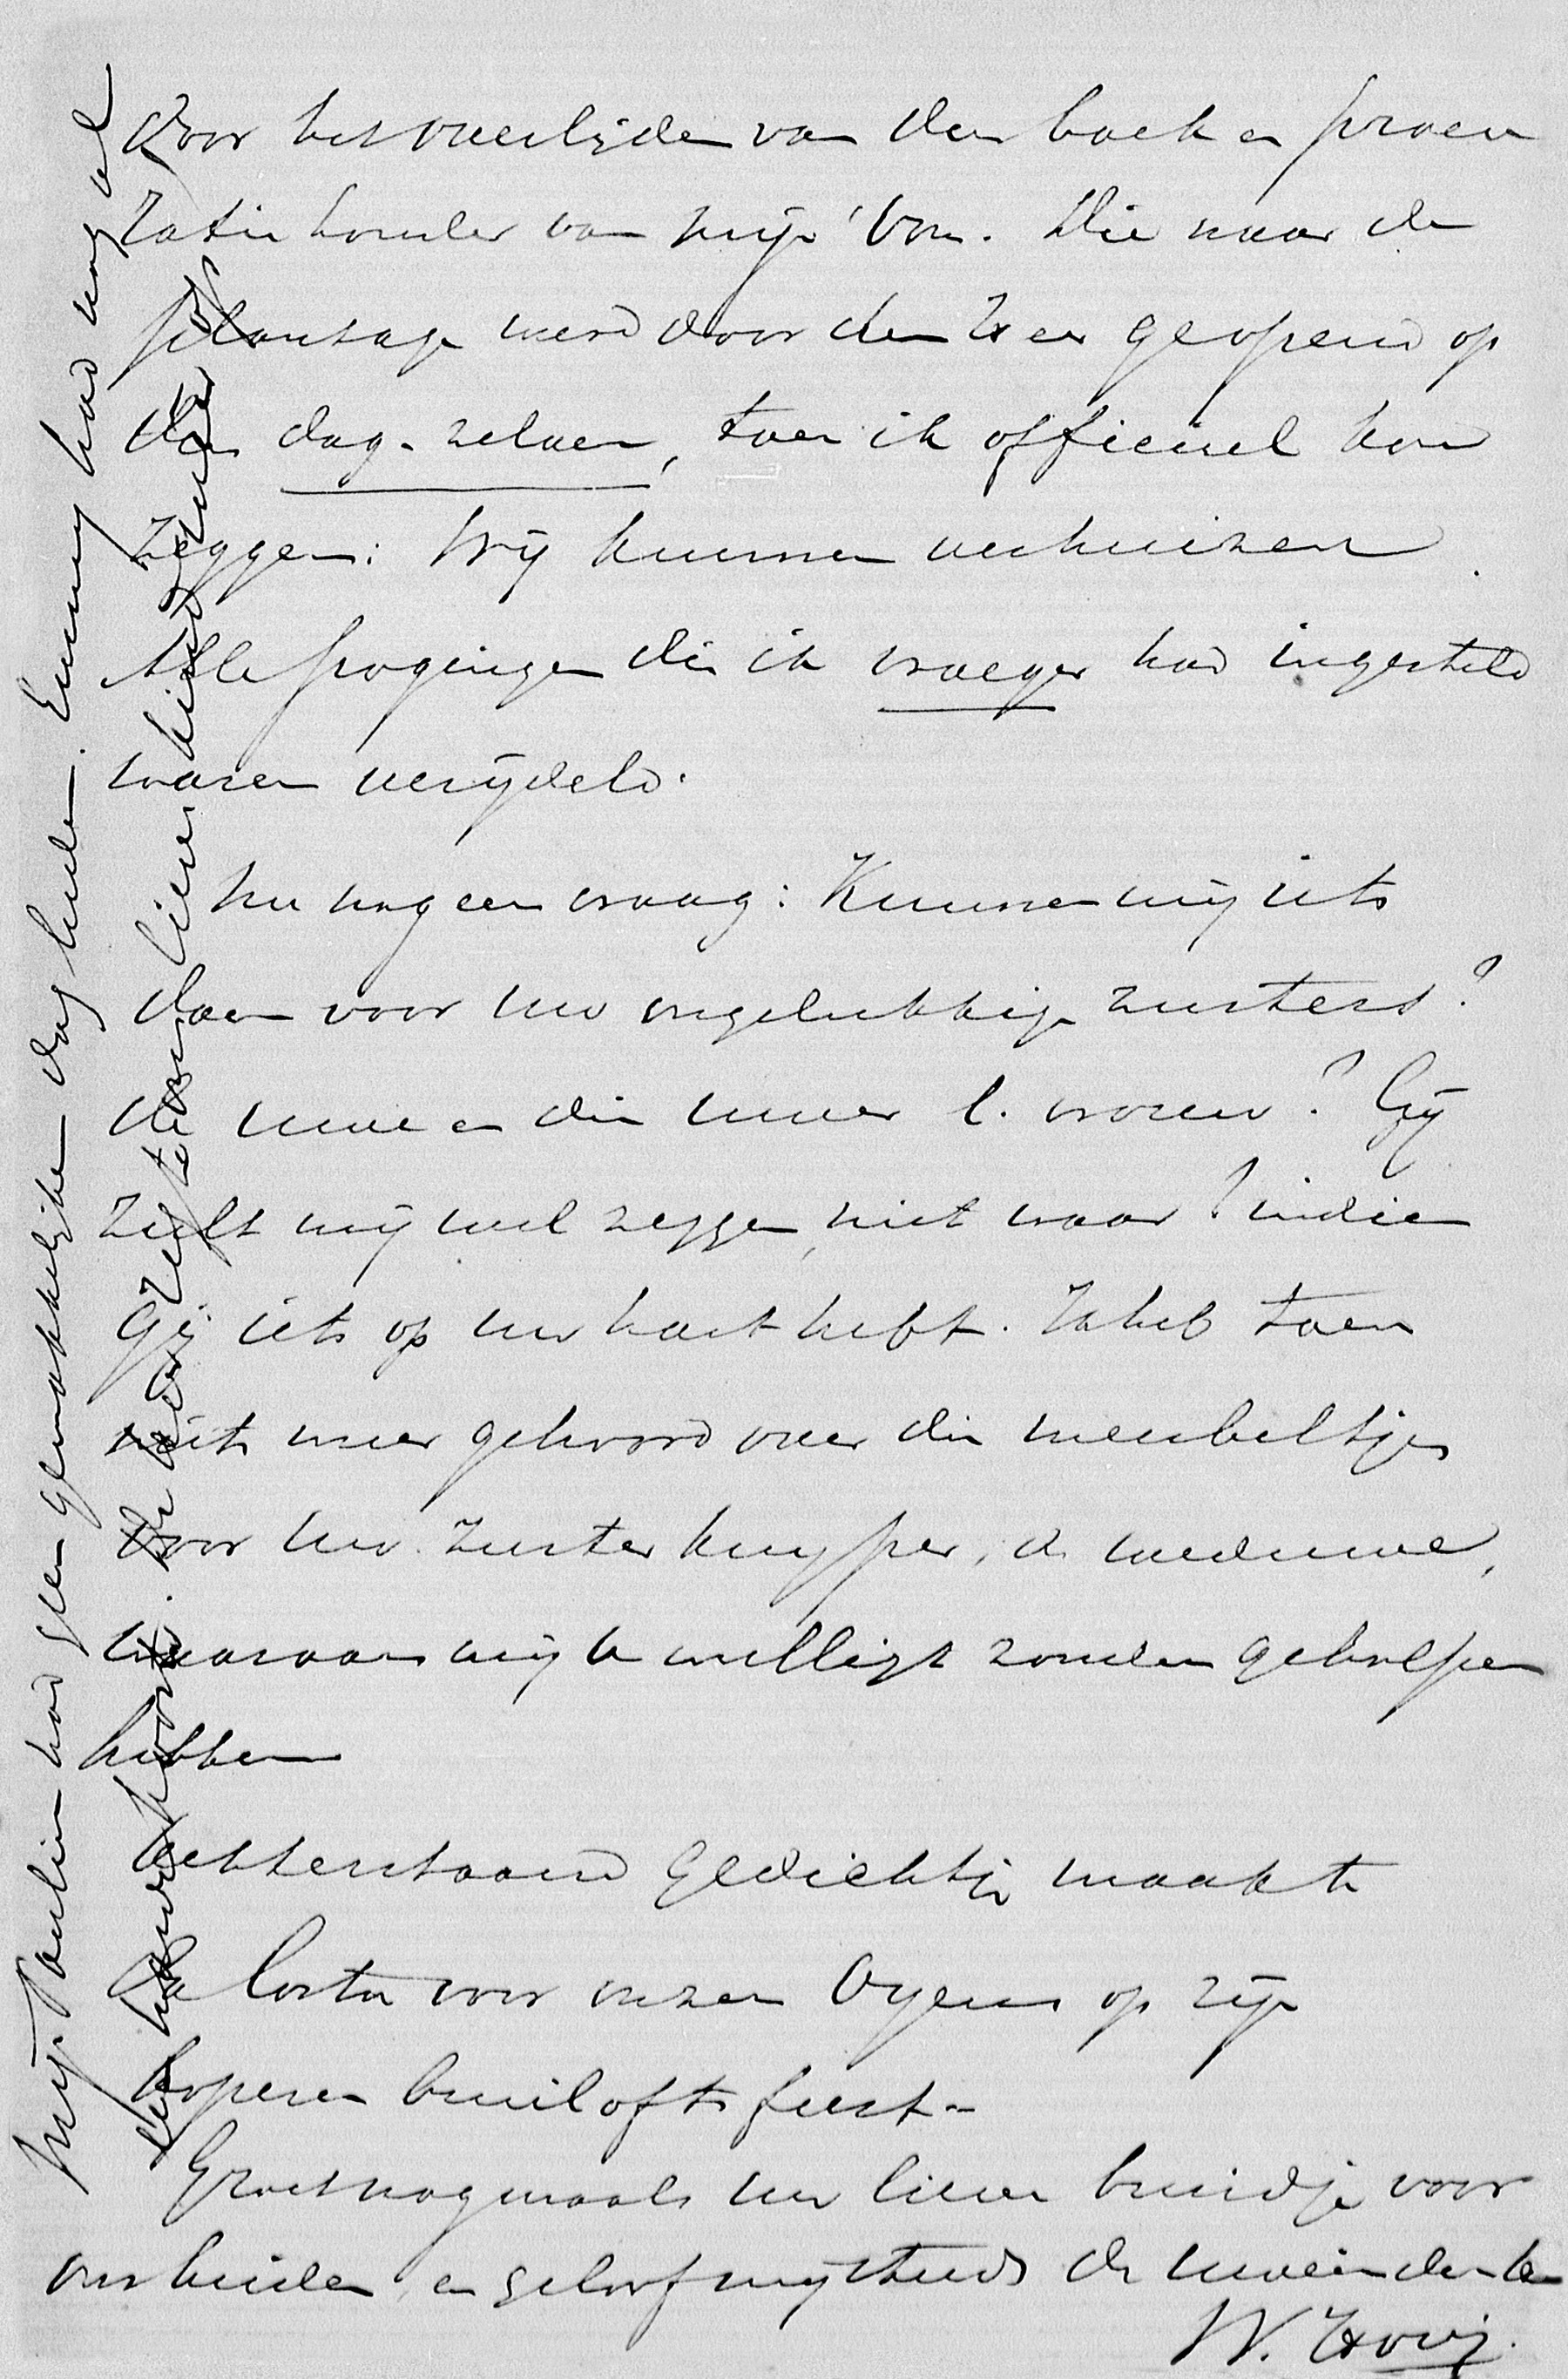 door het overlijden van den boek en procu
ratiehouder van mijn Oom. Die naar de
plantage werd door den Heer geopend op
den dag-zelven, toen ik officieel kon
zeggen: Wij kunnen verhuizen.
Alle pogingen die ik vroeger had ingesteld
waren verijdeld.
Nu nog een vraag: Kunnen wij iets
doen voor uw ongelukkige zusters?
de uwe en die uwer l. vrouw? Gij
zult mij wel zeggen, niet waar? indien
Gij iets op uw hart hebt. Ik heb toen
niets meer gehoord over die meubeltjes
voor uw zuster Kuyper, de weduwe,
waaraan wij U wellicht zouden geholpen
hebben
Achterstaand gedichtje maakte
Da Costa voor onzen Oyens op zijn
koperen bruiloftsfeest.
Groet nogmaals uw lieve bruidje voor
ons beiden, en geloof mij steeds de uwe in den Heer
W. Hovy.
Mijn Paulien had geen gemakkelijken dag heden. Emmy had nog al